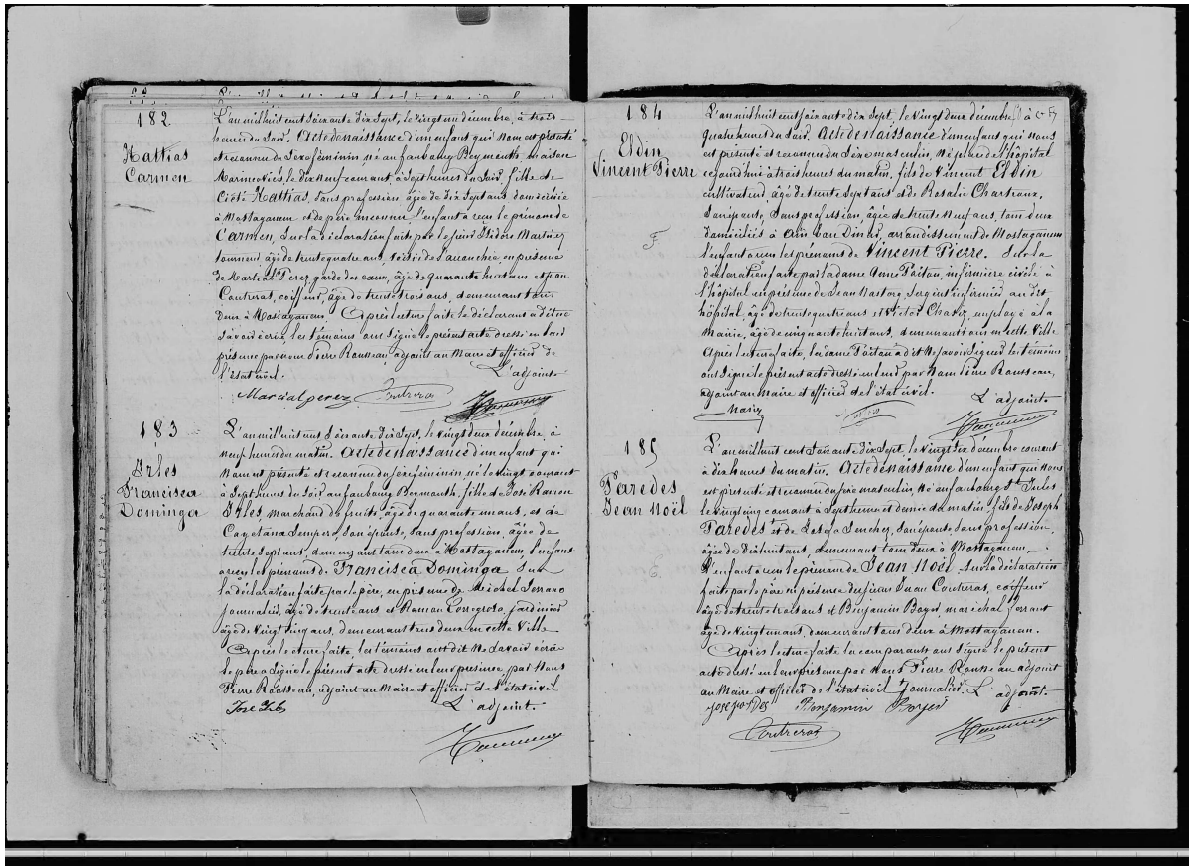 182
Mattias
Carmen
L'an mil huit cent soixante dix sept, le vingt un décembre, à trois
heures du soir. Acte de naissance d'un enfant qui nous est présenté
et reconnu du sexe féminin né au faubourg Beymouth, maison
le dix neuf courant, à sept heures du soir, fille de
Mattias, sans profession, âgée de dix sept ans, domiciliée
à Mostaganem et de père inconnu. L'enfant a reçu le prénom de
Carmen, sur la déclaration faite par le sieur Isidore Martinez
âgé de trente quatre ans, en présence
de Martial Perez, garde des eaux, âgé de quarante ans et
Contreras, coiffeur, âgé de trente trois ans, demeurant tous
deux à Mostaganem. Après lecture faite le déclarant a dit ne
savoir écrire, les témoins ont signé le présent acte dressé en leur
présence par nous Pierre Rousseau, adjoint au Maire et officier de
l'état civil. L'adjoint
Marcial perez Contreras
183
Arles
Francisca
Dominga
L'an mil huit cent soixante dix sept, le vingt deux décembre, à
neuf heures du matin. Acte de naissance d'un enfant qui
nous est présenté et reconnu du sexe féminin, né le vingt courant
à sept heures du soir, au faubourg Beymouth, fille de José Ramon
Arles, marchand de fruits, âgé de quarante un ans, et de
Cayetana Sempere, son épouse, sans profession, âgée de
trente sept ans, demeurant tous deux à Mostaganem, l'enfant
a reçu les prénoms de Francisca Dominga sur
la déclaration faite par le père, en présence de Michel
journalier, âgé de trente ans et Ramon Torregrosa, jardinier
âgé de vingt cinq ans, demeurant tous deux en cette Ville
Après lecture faite, les témoins ont dit ne savoir écrire
le père a signé le présent acte dressé en leur présence, par nous
Pierre Rousseau, adjoint au Maire et officier de l'état civil
L'adjoint.
José
184
Eldin
Vincent Pierre
F
L'an mil huit cent soixante dix sept, le vingt deux décembre à
quatre heures du soir. Acte de naissance d'un enfant qui nous
est présenté et reconnu du sexe masculin, né place de l'hôpital
cejourd'hui à trois heures du matin, fils de Vincent Eldin
cultivateur, âgé de trente sept ans et de Rosalie Chartroux,
son épouse, sans profession, âgée de trente neuf ans, tous deux
domiciliés à Aïn bou Dinar, arrondissement de Mostaganem
l'enfant a reçu les prénoms de Vincent Pierre. Sur la
déclaration faite par la dame Anne Poitou, infirmière civile à
l'hôpital en présence de Jean sergent infirmier au dit
hôpital, âgé de trente quatre ans et Victor employé à la
Mairie, âgé de cinquante huit ans, demeurant tous en cette Ville
Après lecture faite, la dame Poitou a dit ne savoir signer les témoins
ont signé le présent acte dressé en leur par nous Pierre Rousseau,
adjoint au Maire et officier de l'état civil.
L'adjoint
185
Paredes
Jean Noël
L'an mil huit cent soixante dix sept, le vingt six décembre courant
à dix heures du matin. Acte de naissance d'un enfant qui nous
est présenté et reconnu du sexe masculin, né au faubourg St Jules
le vingt cinq courant à sept heures et demie du matin, fils de Joseph
Paredes et de Sencher, son épouse sans profession,
âgée de dix huit ans, demeurant tous deux à Mostaganem.
L'enfant a reçu le prénom de Jean Noël. Sur la déclaration
faite par le père en présence des sieurs Juan Contreras, coiffeur
âgé de trente trois ans et Benjamin Boyer, maréchal ferrant
âgé de vingt un ans, demeurant tous deux à Mostaganem.
Après lecture faite les comparants ont signé le présent
acte dressé en leur présence par nous Pierre Rousseau adjoint
au Maire et officier de l'état civil Journalier. L'adjoint.
Benjamin Boyer
Contreras